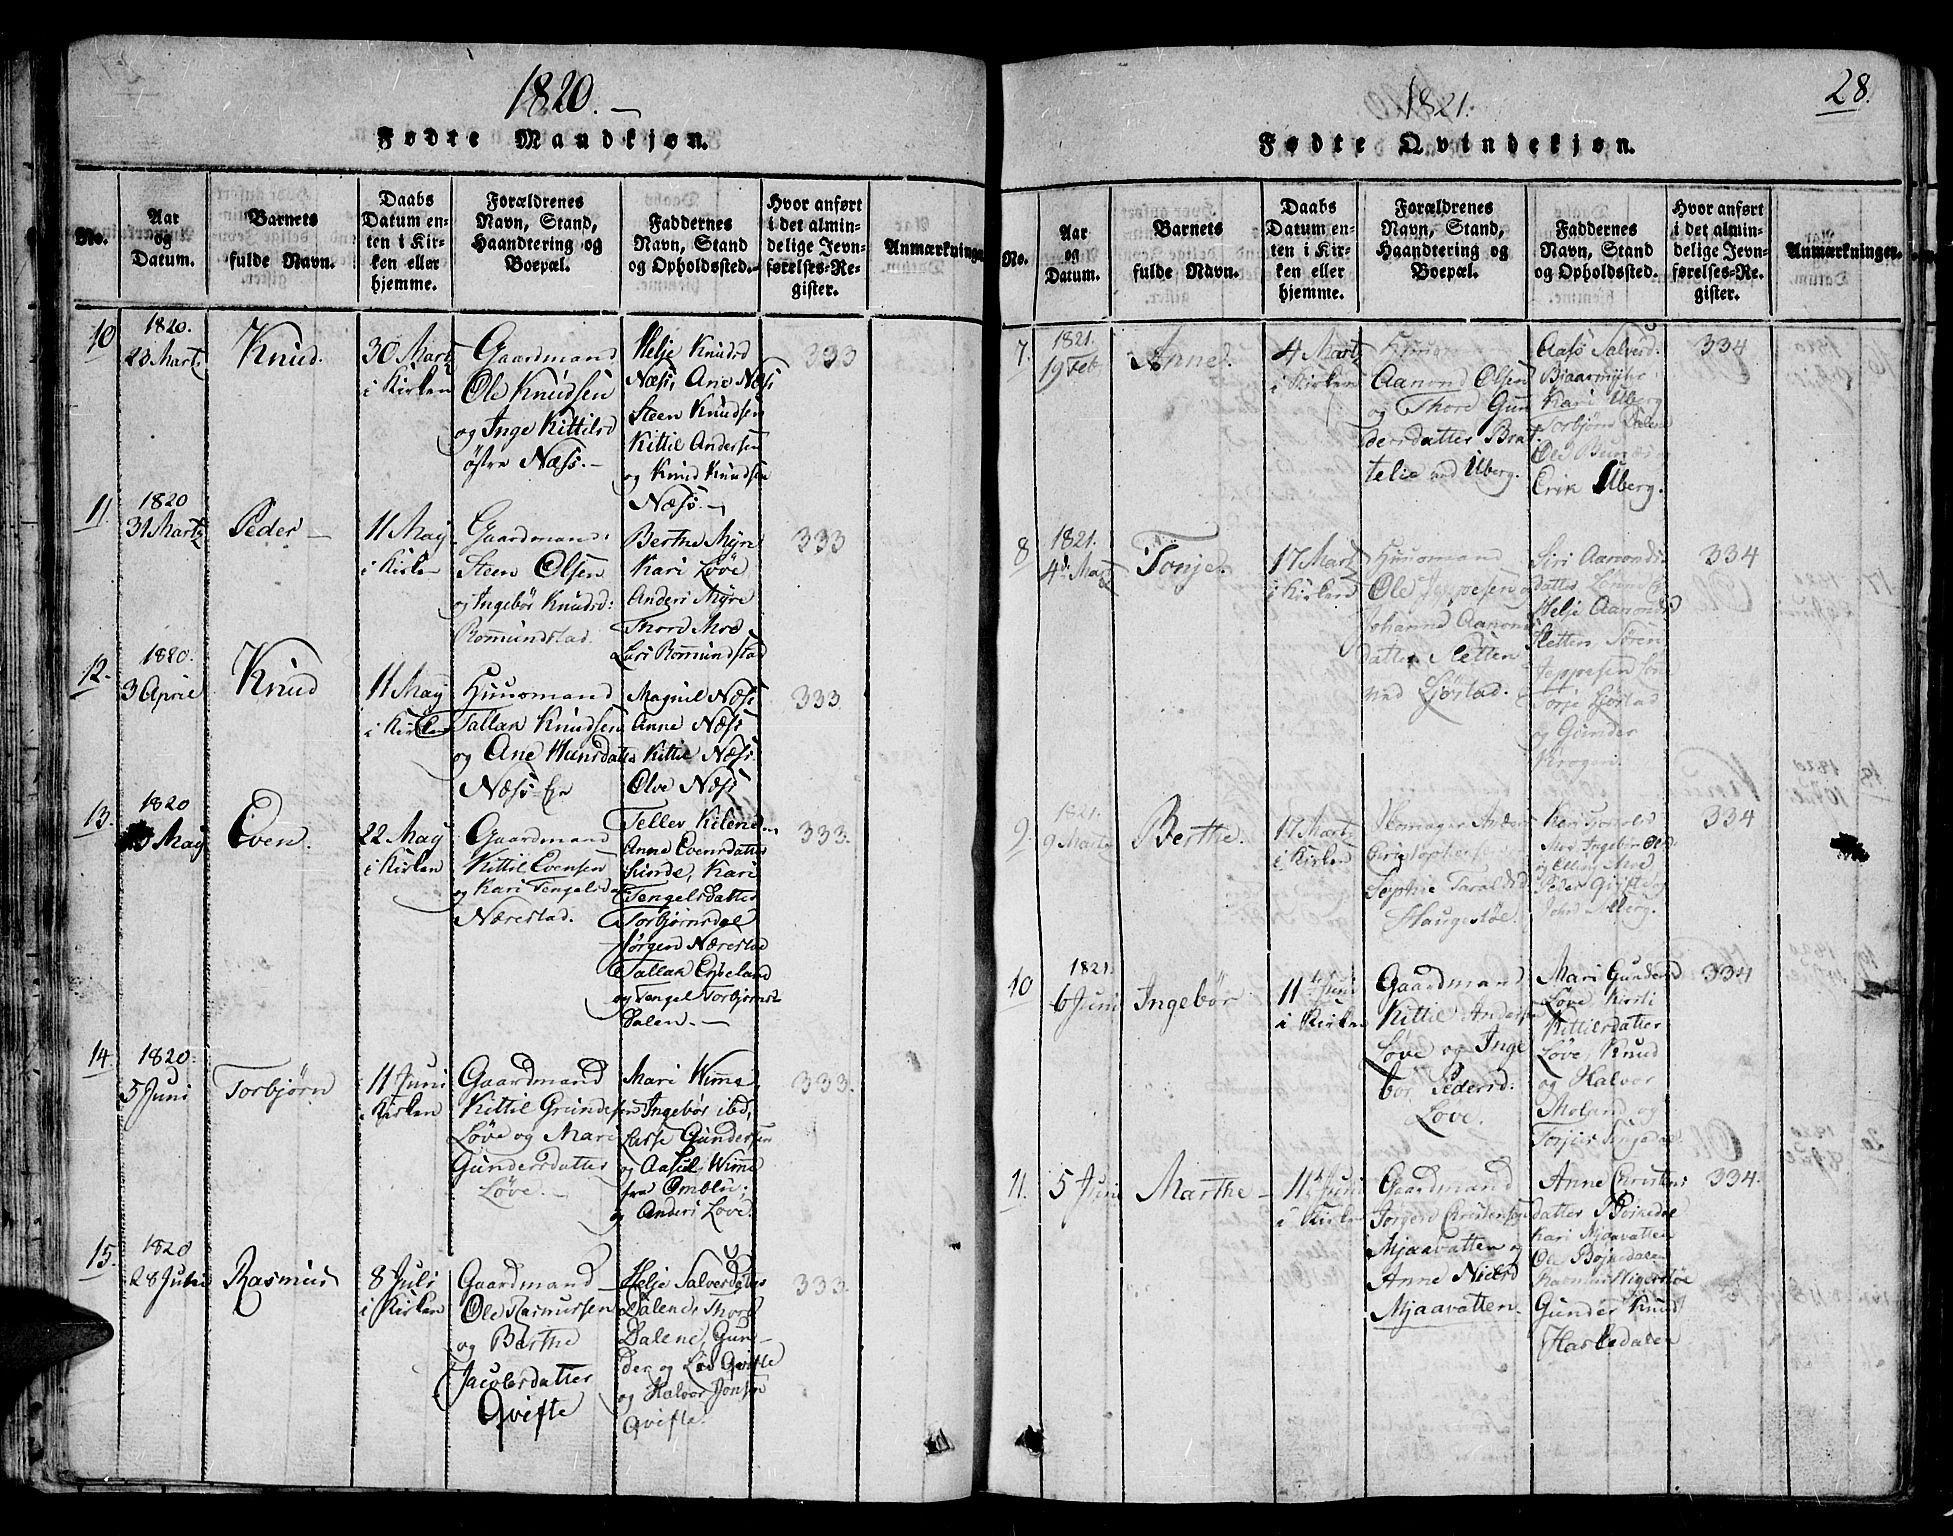 1820.
Fødte Mandkjøn.
No.
Aar
og
Datum.
Barnets
fulde Navn.
Daabs
Datum en-
ten i Kir-
ken eller
hjemme.
Forældrenes
Navn, Stand,
Haandtering og
Boepæl.
Faddernes
Navn, Stand
og Opholdssted.
Hvor anført
i det almin-
delige Jevn-
førelses-Re-
gister.
Anmærkninger
10
1820.
23 Martz
Knud.
30 Martz
i Kirken
Gaardmand
Ole Knudsen
og Inge Kittilsd
østre Næss.
Helje Knudsd
Næss, Ane Næss
Steen Knudsen
Kittil Andersen
og Knud Knudsen
Næss.
333
11
1820
31 Martz
Peder
11 May
i Kirken
Gaardmand
Steen Olsen
og Ingebør Knudsd:
Rommundstad.
Berthe Myre
Kari Løve
Anders Myre
Thord Moe
Lars Rommundstad
333
12.
1820.
3 April
Knud
11 May
i Kirken
Huusmand
Tallak Knudsen
og Ane
Næss Eje
Magnil Næss
Anne Næss
Kittil Næss.
Olve Næss
333
13.
1820
May
Even.
22 May
i Kirken
Gaardmand
Kittil Evensen
og Kari Tengelsd
Nærestad.
Tellev Kilene
Anne Evensdatter
Kari
Tengelsdatter
Torbjørnsdal
Jørgen Nærestad
Tallak Espeland
og Tengel Torbjørns
Dalen.
333.
14.
1820.
5 Juni
Torbjørn
11 Juni
i Kirken
Gaardmand
Kittil Gundersen
Løve og Mari
Gundersdatter
Løve.
Mari Wimme
Ingebør ibd,
Gundersen
og Wimme
fra Omblie,
og Anders Løve.
333.
15.
1820
28 Juni
Rasmus
8 Juli
i Kirken
Gaardmand
Ole Rasmussen
og Berthe
Jacobsdatter
Qvifte
Helje Salvesdatter
Dalene Thore
Dalene, Gun-
der og Qvifte
og Halvor Jonsen
Qvifte.
333.
1821.
28.
Fødte Qvindekjøn.
No.
Aar
og
Datum.
Barnets
fulde Navn.
Daabs
Datum en-
ten i Kir-
ken eller
hjemme.
Forældrenes
Navn, Stand,
Haandtering og
Boepæl.
Faddernes
Navn, Stand
og Opholdssted.
Hvor anført
i det almin-
delige Jevn-
førelses-Re-
gister.
Anmærkninger.
7.
1821.
19 Feb
Anne.
4 Martz
i Kirken
Aanond Olsen
og Thore Gun
dersdatter Brat
telie ved Uberg.
Aase Salvesd.
Bjaarmyhr
Kari Uberg
Torbjørn Dalen
Erik Uberg.
334
8
1821.
4 Martz
Tonje
17 Martz
i Kirken
Huusmand
Ole Jeppesen og
Johanne Aanonds
datter Sletten
ved
Siri Aanonds
datter
Helje Aanondsd
Sletten Søren
Jeppesen
og Gunder
Krogen.
334
9.
1821.
9 Martz
Berthe.
17 Martz
i Kirken
Anders
Christophersen
Sophie Taraldsd
Haugestøe.
Kari
Moe Ingebør
og Elling Moe
Peder Qvifte og
John Solberg.
334
10
1821.
6 Juni
Ingebør
11 Juni
i Kirken
Gaardmand
Kittil Andersen
Løve og Inge
bor Pedersd:
Løve.
Mari Gundersd
Løve Kirsti
Kittilsdatter
Løve, Knud
og Halvor
Moland og
334
11.
5 Juni
Marthe
11 Juni
i Kirken
Gaardmand
Jørgen Christensen
Mjaavatten og
Anne Nielsd
Mjaavatten.
Anne Christens
datter Bøjedal
Kari Mjaavatten
Ole Bøjedalen
Gunder Knud
Haskedalen
334.